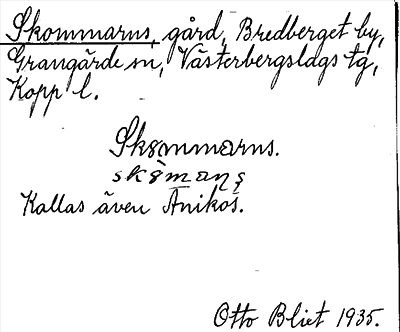 Skommarns, gård, Bredberget by,
Grangärde sn, Västerbergslags tg,
Kopp l.
Skommarns.
Kallas även Anikos.
Otto Blixt 1935.